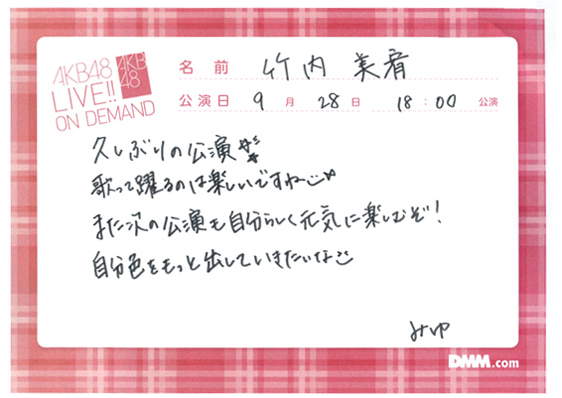 AKB48
LIVE!!
ON DEMAND
AKB
48
名前 竹内美宥
公演日 9月28日 18:00 公演
久しぶりの公演
歌って踊るのは楽しいですね
また次の公演も自分らしく元気に楽しむぞ!
自分色をもっと出していきたいな
みゆ
DMM.com